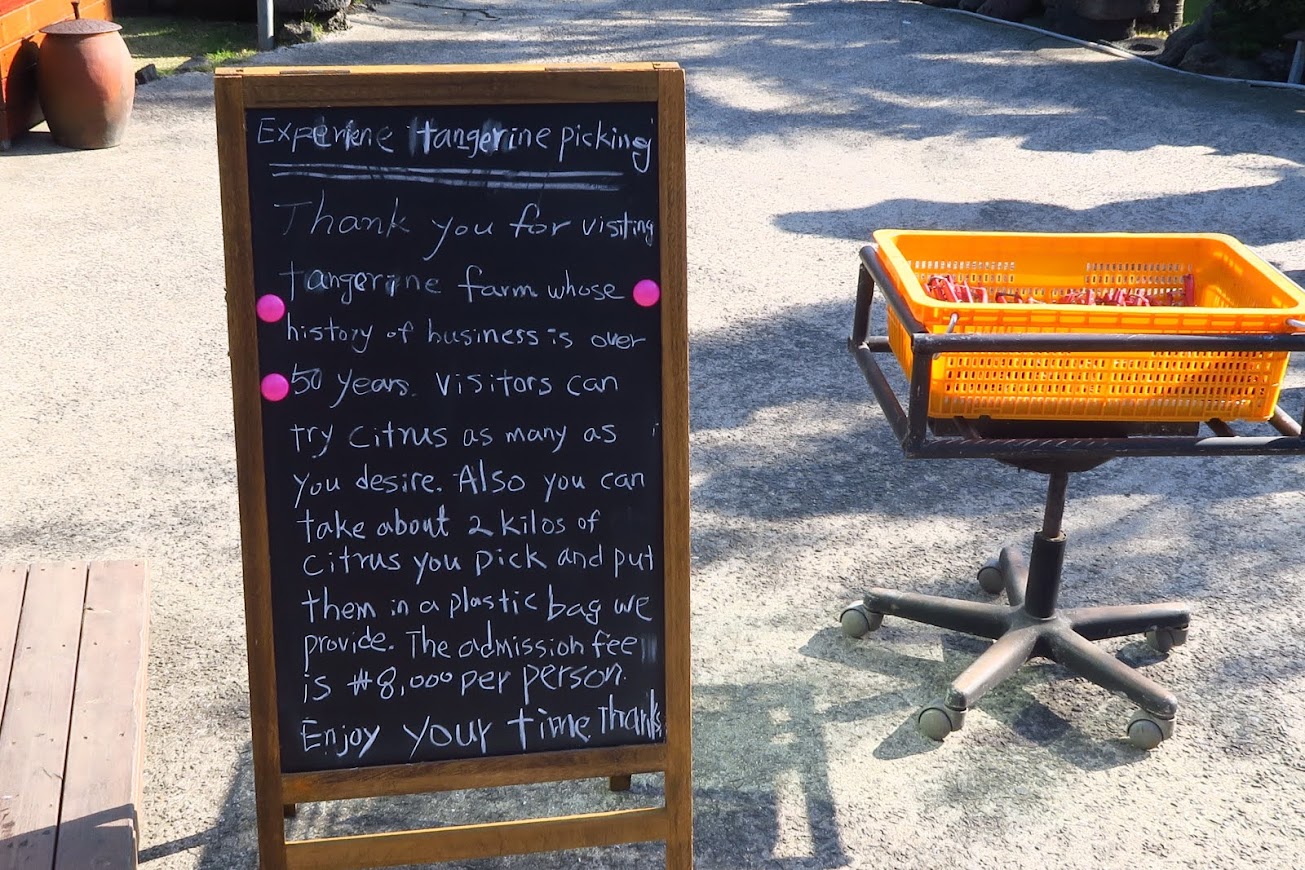 Experiene tangerine picking
Thank you for visiting
tangerine farm whose
history of business is over
50 years. Visitors can
try citrus as many as
you desire. Also you can
take about 2 kilos of
citrus you pick and put
them in a plastic bag we
provide. The admission fee
is ₩8,000 per person.
Enjoy your time. Thanks